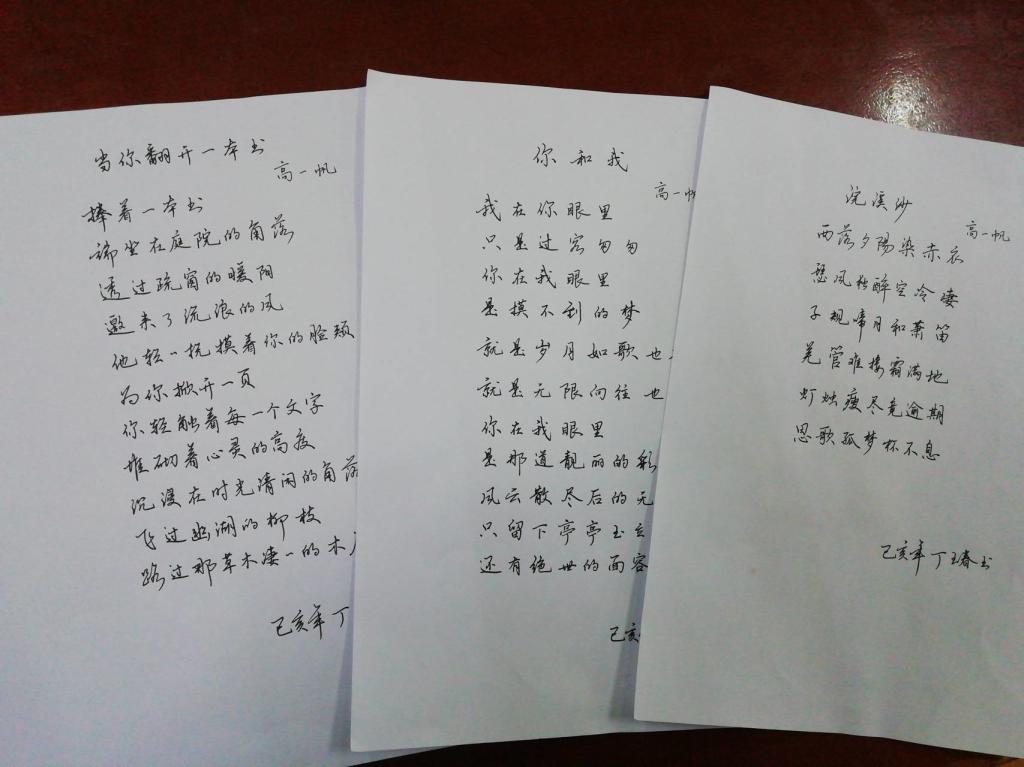 当你翻开一本书
高一帆
捧着一本书
谛坐在庭院的角落
透过疏窗的暖阳
邀来了流浪的风
他轻轻抚摸着你的脸颊
为你掀开一页
你轻触着每一个文字
堆砌着心灵的高度
沉浸在时光清闲的角落
飞过幽湖的柳枝
路过那草木凄凄的木
己亥年丁
你和我
高一帆
我在你眼里
只是过客匆匆
你在我眼里
是摸不到的梦
就是岁月如歌也
就是无限向往也
你在我眼里
是那道靓丽的彩
风云散尽后的无
只留下亭亭玉立
还有绝世的面容
己亥
浣溪沙
高一帆
西落夕陽染赤衣
瑟风独醉空冷凄
子规啼月和萧笛
羌管难掩霜满地
灯烛瘦尽竟逾期
思歌孤梦杯不息
己亥年丁玉春书